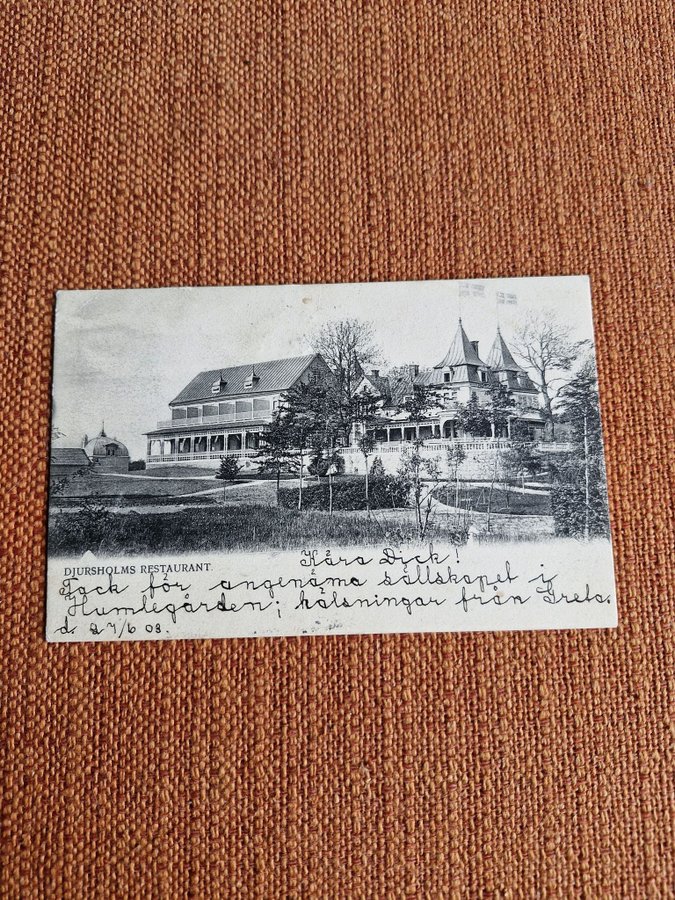 DJURSHOLMS RESTAURANT.
Kära Dick!
Tack för angenäma sällskapet i
Humlegården; hälsningar från Greta.
d. 27/6 03.